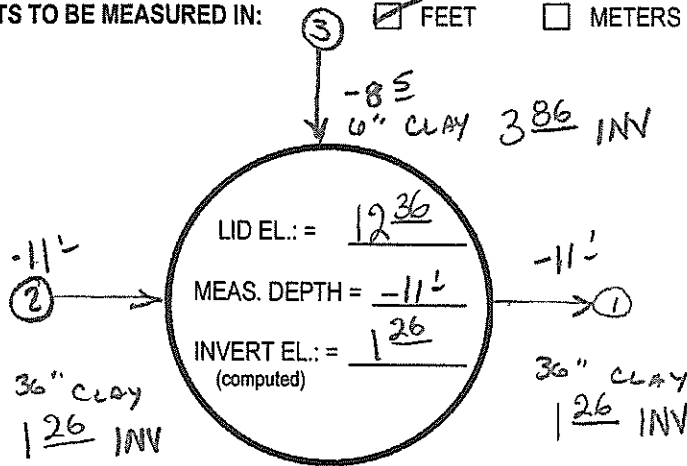 TS TO BE MEASURED IN: FEET METERS
3
-8 5
6" CLAY 3 86 INV
LID EL.: = 12 36
-11 1
2
MEAS. DEPTH = -11 1
-11 1
1
INVERT EL.: = 1 26
(computed)
36" CLAY
1 26 INV
36" CLAY
1 26 INV